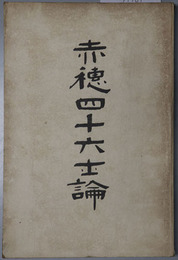 赤穂四十六士論